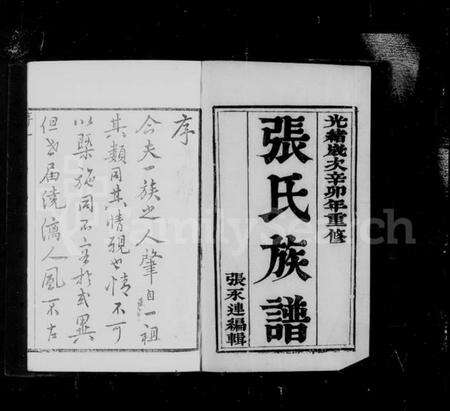 光緒歲次辛卯年重修
張氏族譜
張永連編輯
序
今夫一族之人肇自一祖
其類同其情親也情不可
以槩施同不容於或異
但世届澆漓人風不古
FamilySearch